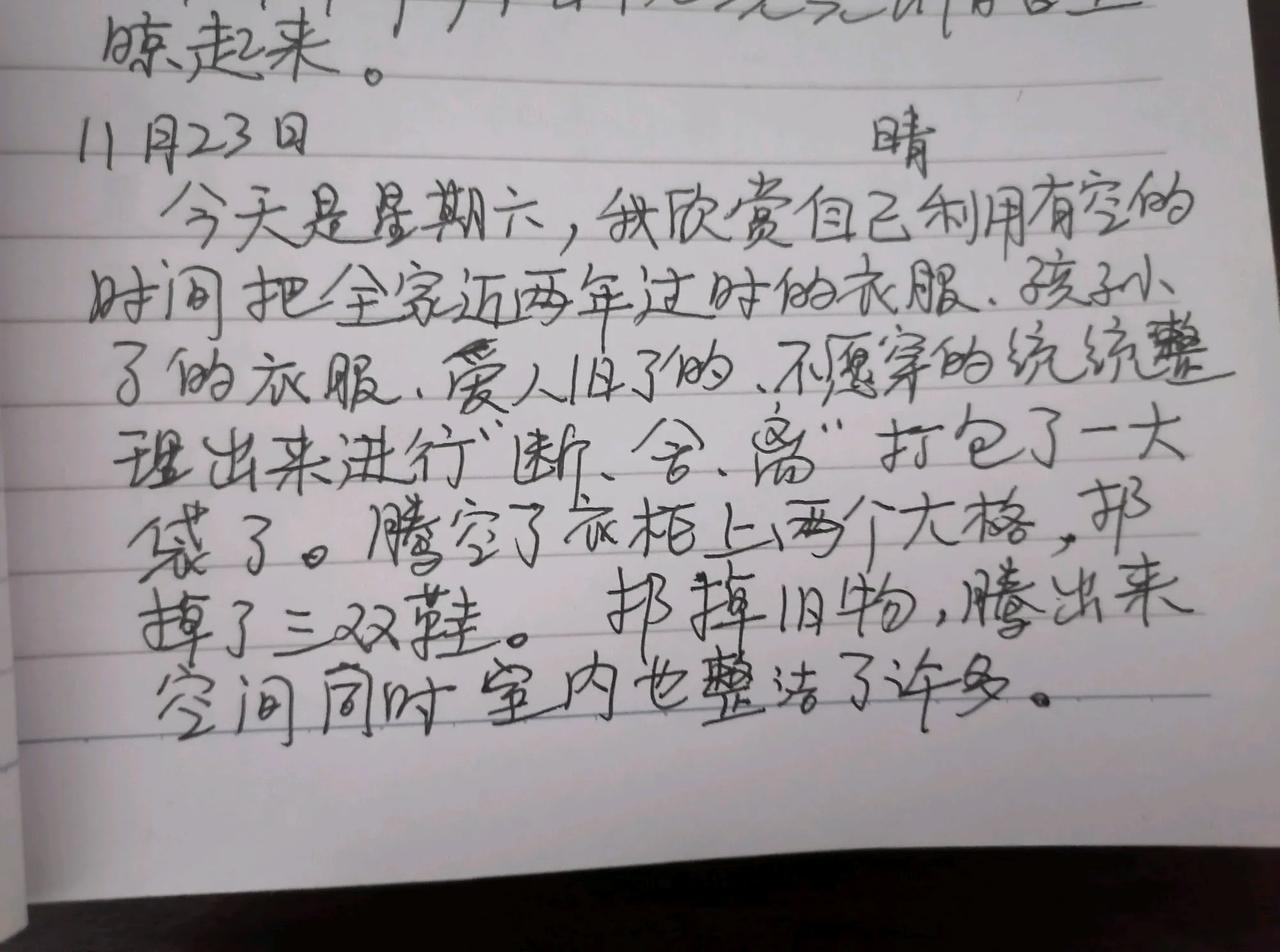 晾起来。
11月23日 晴
今天是星期六，我欣赏自己利用有空的
时间把全家近两年过时的衣服、孩子小
了的衣服、爱人旧了的、不愿穿的统统整
理出来进行“断、舍、离”打包了一大
袋了。腾空了衣柜上两个大格，扔
掉了三双鞋。 扔掉旧物，腾出来
空间同时室内也整洁了许多。